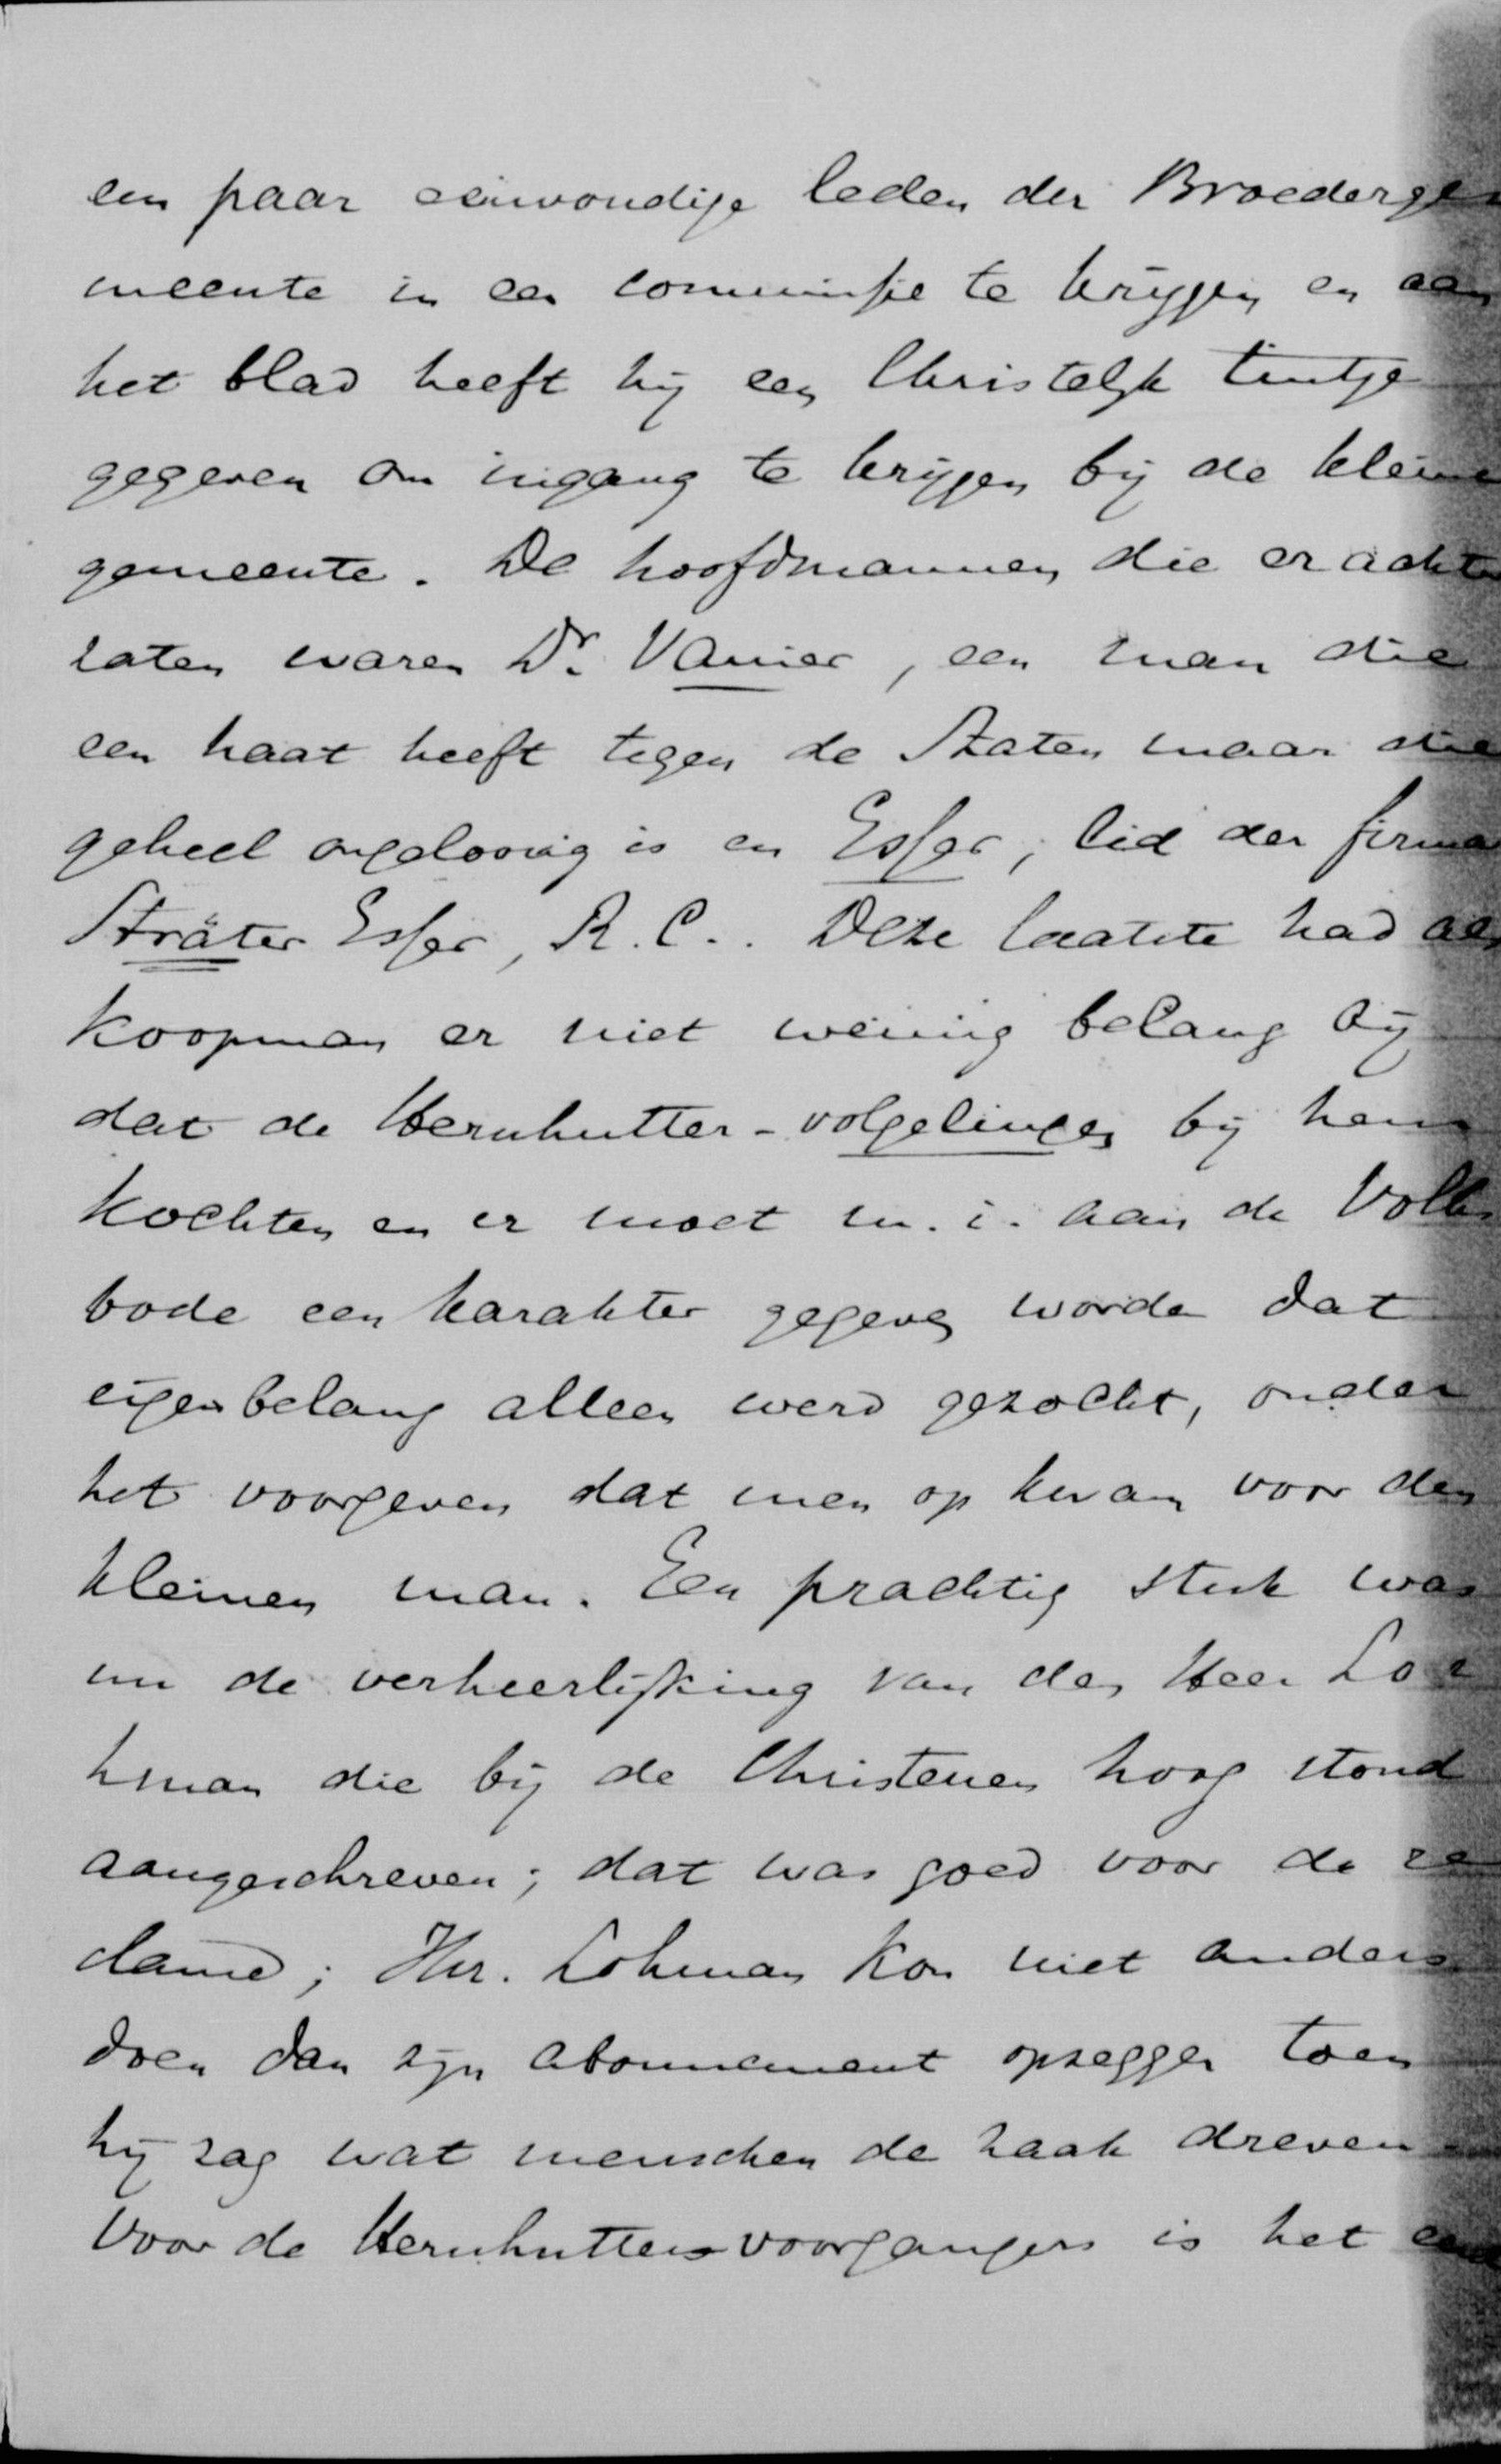 een paar eenvoudige leden der Broederge
meente in een commissie te krijgen en aan
het blad heeft hij een Christelijk tintje
gegeven om ingang te krijgen bij de kleine
gemeente. De hoofdmannen die er achter
zaten waren Dr. Vanier, een man die
een haat heeft tegen de Staten maar die
geheel ongeloovig is en Esser, lid der firma
Sträter Esser, R. C.. Deze laatste had als
koopman er niet weinig belang bij
dat de Hernhutter-volgelingen bij hem
kochten en er moet m. i. aan de Volks
bode een karakter gegeven worden dat
eigenbelang alleen werd gezocht, onder
het voorgeven dat men op kwam voor den
kleinen man. Een prachtig stuk was
nu de verheerlijking van den Heer Lo
hman die bij de Christenen hoog stond
aangeschreven; dat was goed voor de re
clame; Hr. Lohman kon niet anders
doen dan zijn abonnement opzeggen toen
hij zag wat menschen de zaak dreven.
Voor de Hernhutters voorgangers is het een